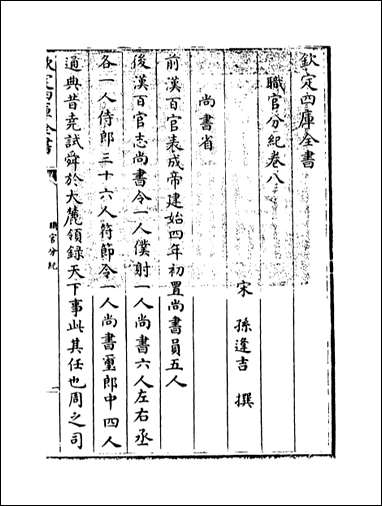 欽定四庫全書
職官分紀卷八
宋 孫逢吉 撰
尚書省
前漢百官表成帝建始四年初置尚書員五人
後漢百官志尚書令一人僕射一人尚書六人左右丞
各一人侍郎三十六人符節令一人尚書璽郎中四人
通典昔堯試舜於大麓領錄天下事此其任也周之司
欽定四庫全書
職官分紀